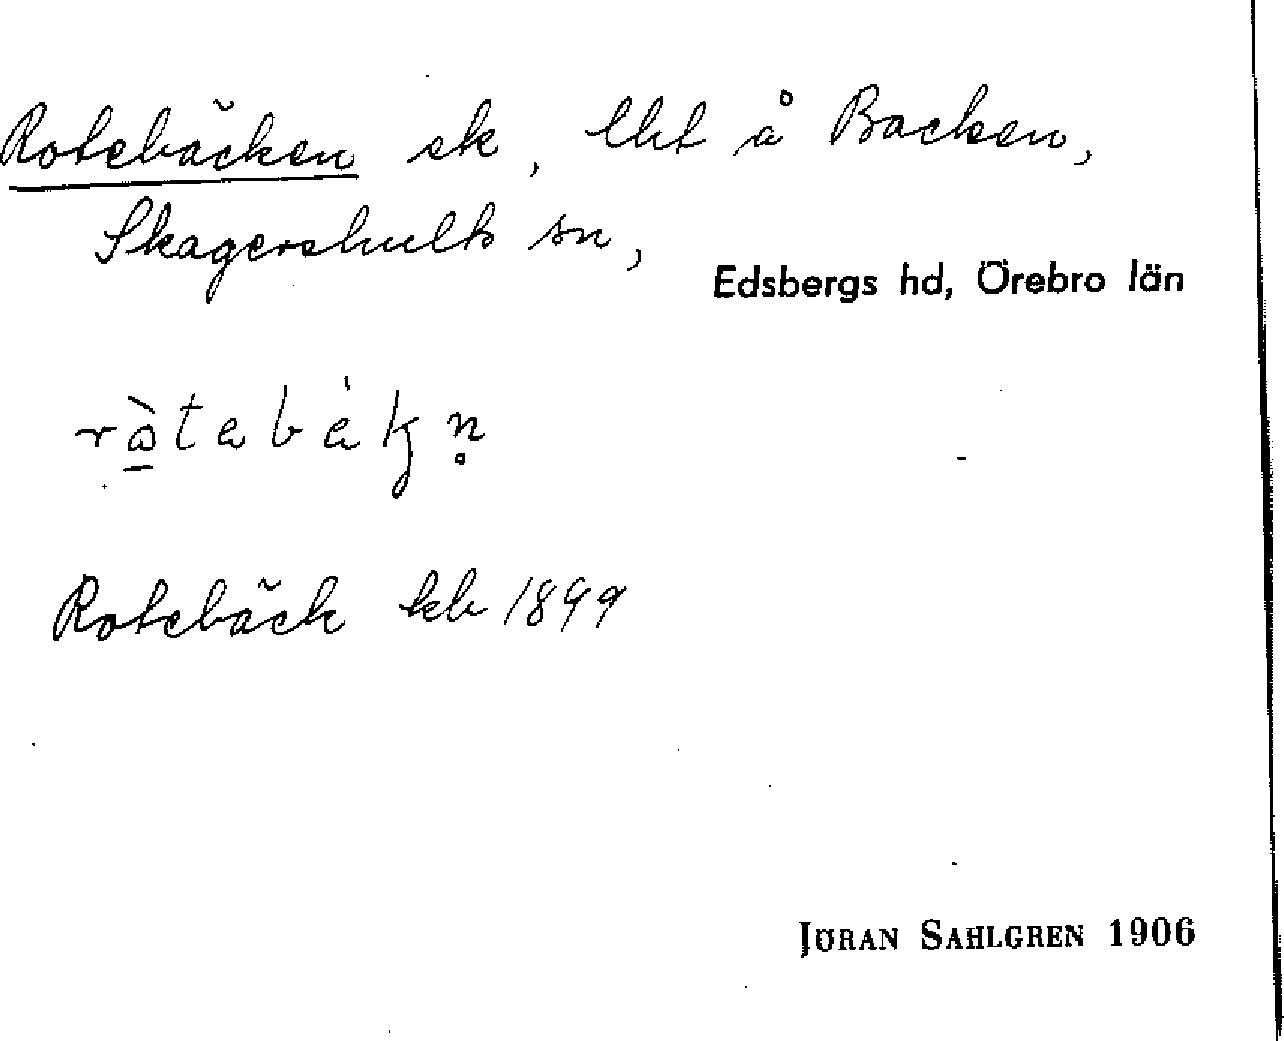 Rotebäcken sk, lht å Backen,
Skagershults sn,
Edsbergs hd, Örebro län
Rotebäck kb 1899
JÖRAN SAHLGREN 1906